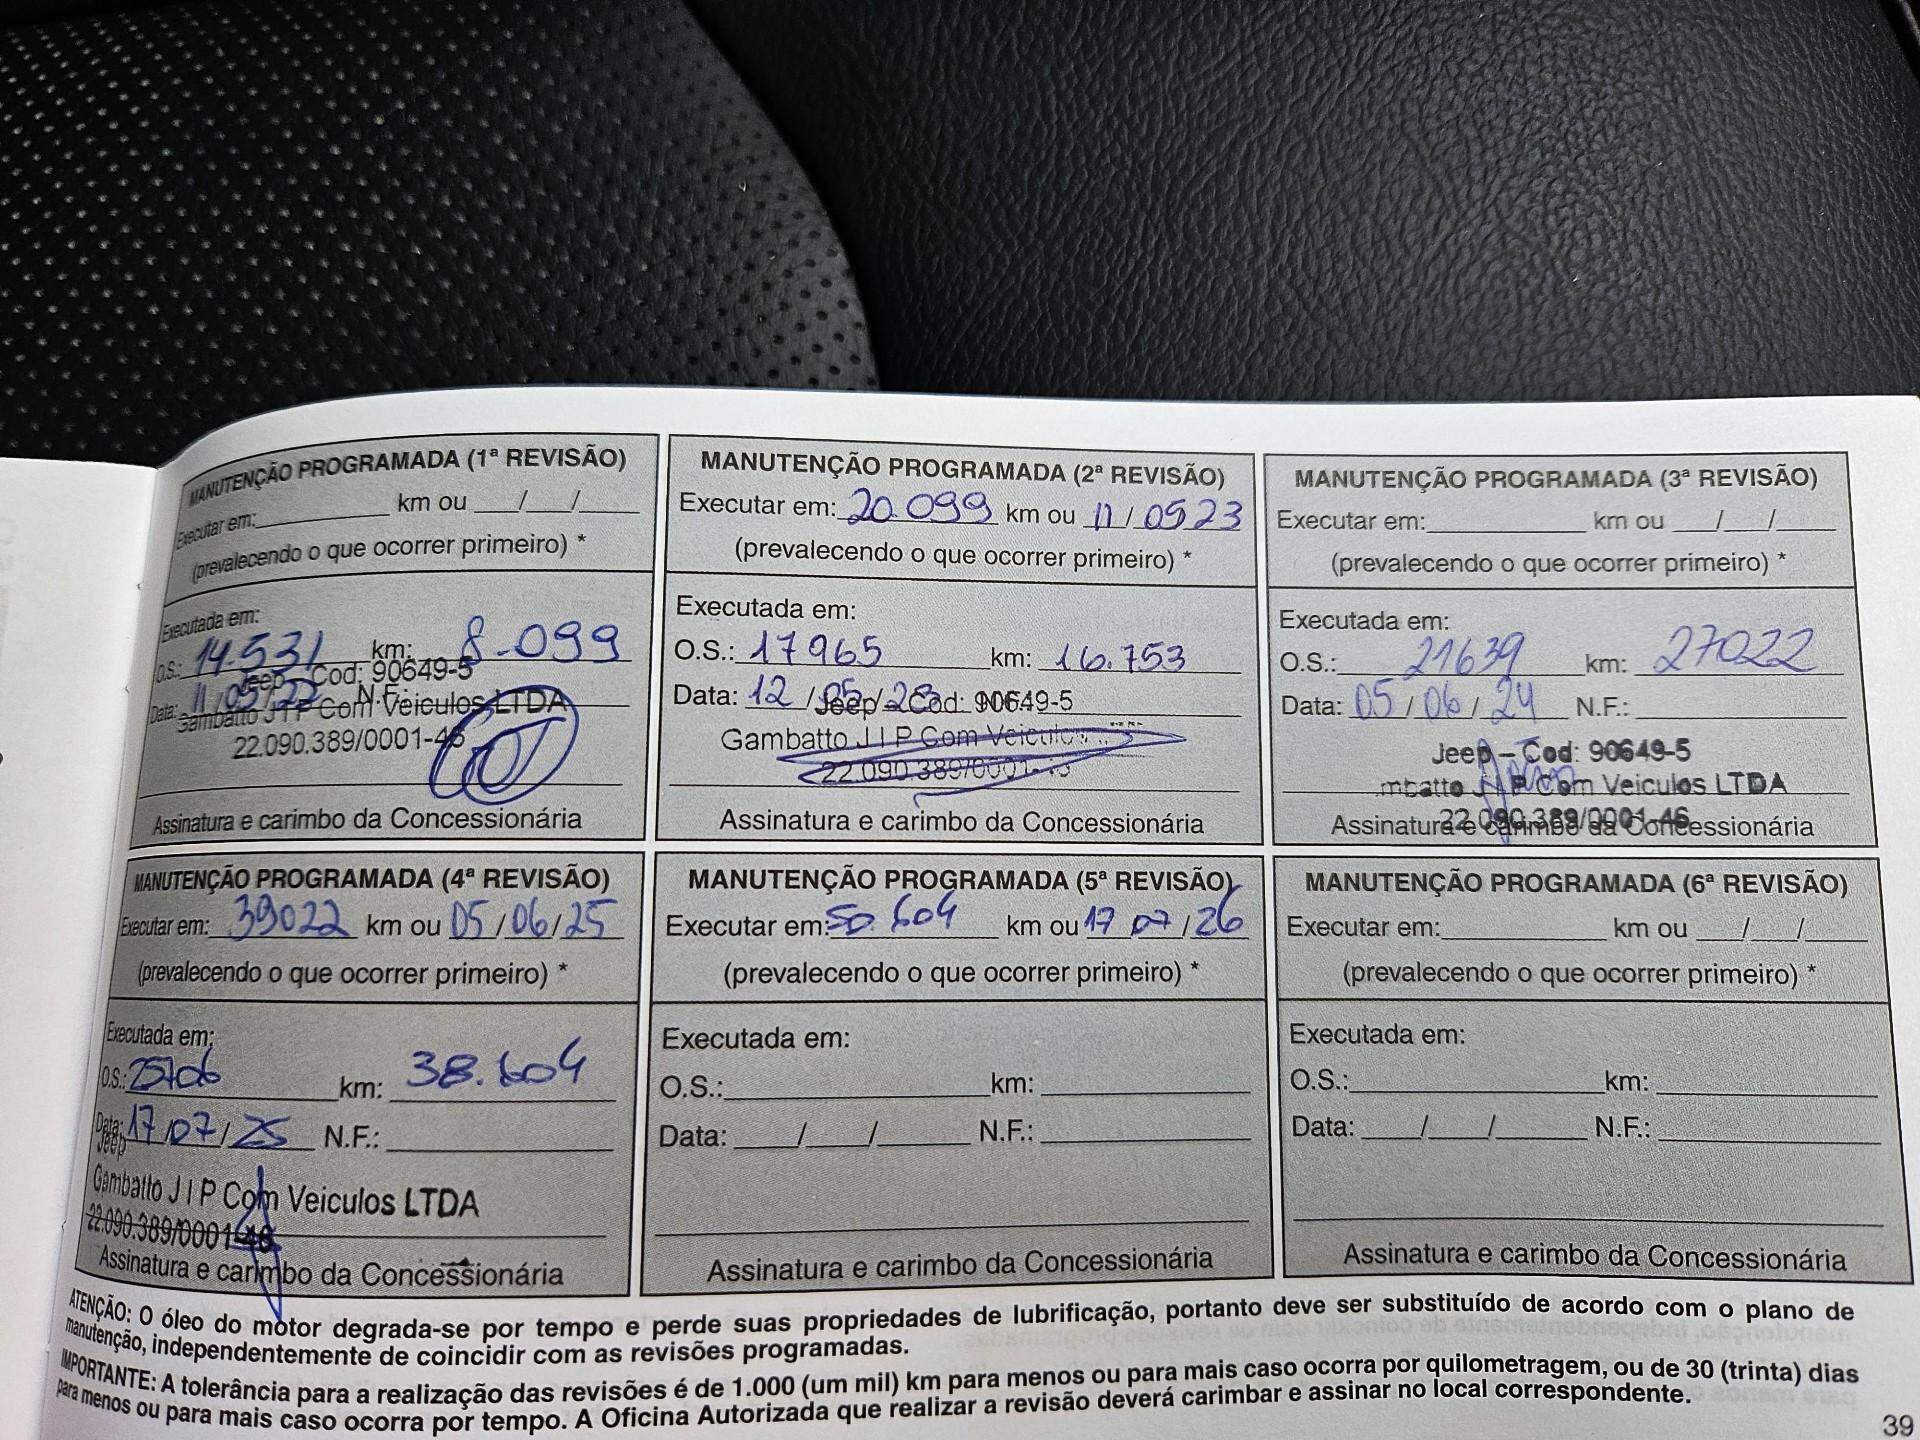 MANUTENÇÃO PROGRAMADA (1ª REVISÃO)
Executar em: km ou / /
(prevalecendo o que ocorrer primeiro) *
Executada em:
O.S.: 14.531 km: 8.099
Jeep Cod: 90649-5
Data: 11/05/22 N.F.:
Gambatto J I P Com Veiculos LTDA
22.090.389/0001-46
Assinatura e carimbo da Concessionária
MANUTENÇÃO PROGRAMADA (2ª REVISÃO)
Executar em: 20.099 km ou 11/0523
(prevalecendo o que ocorrer primeiro) *
Executada em:
O.S.: 17965 km: 16.753
Data: 12/05/23 N.F.:
Jeep Cod: 90649-5
Gambatto J I P Com Veiculos
22.090.389/0001-46
Assinatura e carimbo da Concessionária
MANUTENÇÃO PROGRAMADA (3ª REVISÃO)
Executar em: km ou / /
(prevalecendo o que ocorrer primeiro) *
Executada em:
O.S.: 21639 km: 27022
Data: 05/06/24 N.F.:
Jeep – Cod: 90649-5
mbatto J I P Com Veiculos LTDA
22.090.389/0001-46
Assinatura e carimbo da Concessionária
MANUTENÇÃO PROGRAMADA (4ª REVISÃO)
Executar em: 39022 km ou 05/06/25
(prevalecendo o que ocorrer primeiro) *
Executada em:
O.S.: 25706 km: 38.604
Data: 17/07/25 N.F.:
Jeep
Gambatto J I P Com Veiculos LTDA
22.090.389/0001-46
Assinatura e carimbo da Concessionária
MANUTENÇÃO PROGRAMADA (5ª REVISÃO)
Executar em: 50.604 km ou 17 07/26
(prevalecendo o que ocorrer primeiro) *
Executada em:
O.S.: km:
Data: / / N.F.:
Assinatura e carimbo da Concessionária
MANUTENÇÃO PROGRAMADA (6ª REVISÃO)
Executar em: km ou / /
(prevalecendo o que ocorrer primeiro) *
Executada em:
O.S.: km:
Data: / / N.F.:
Assinatura e carimbo da Concessionária
ATENÇÃO: O óleo do motor degrada-se por tempo e perde suas propriedades de lubrificação, portanto deve ser substituído de acordo com o plano de
manutenção, independentemente de coincidir com as revisões programadas.
IMPORTANTE: A tolerância para a realização das revisões é de 1.000 (um mil) km para menos ou para mais caso ocorra por quilometragem, ou de 30 (trinta) dias
para menos ou para mais caso ocorra por tempo. A Oficina Autorizada que realizar a revisão deverá carimbar e assinar no local correspondente.
39